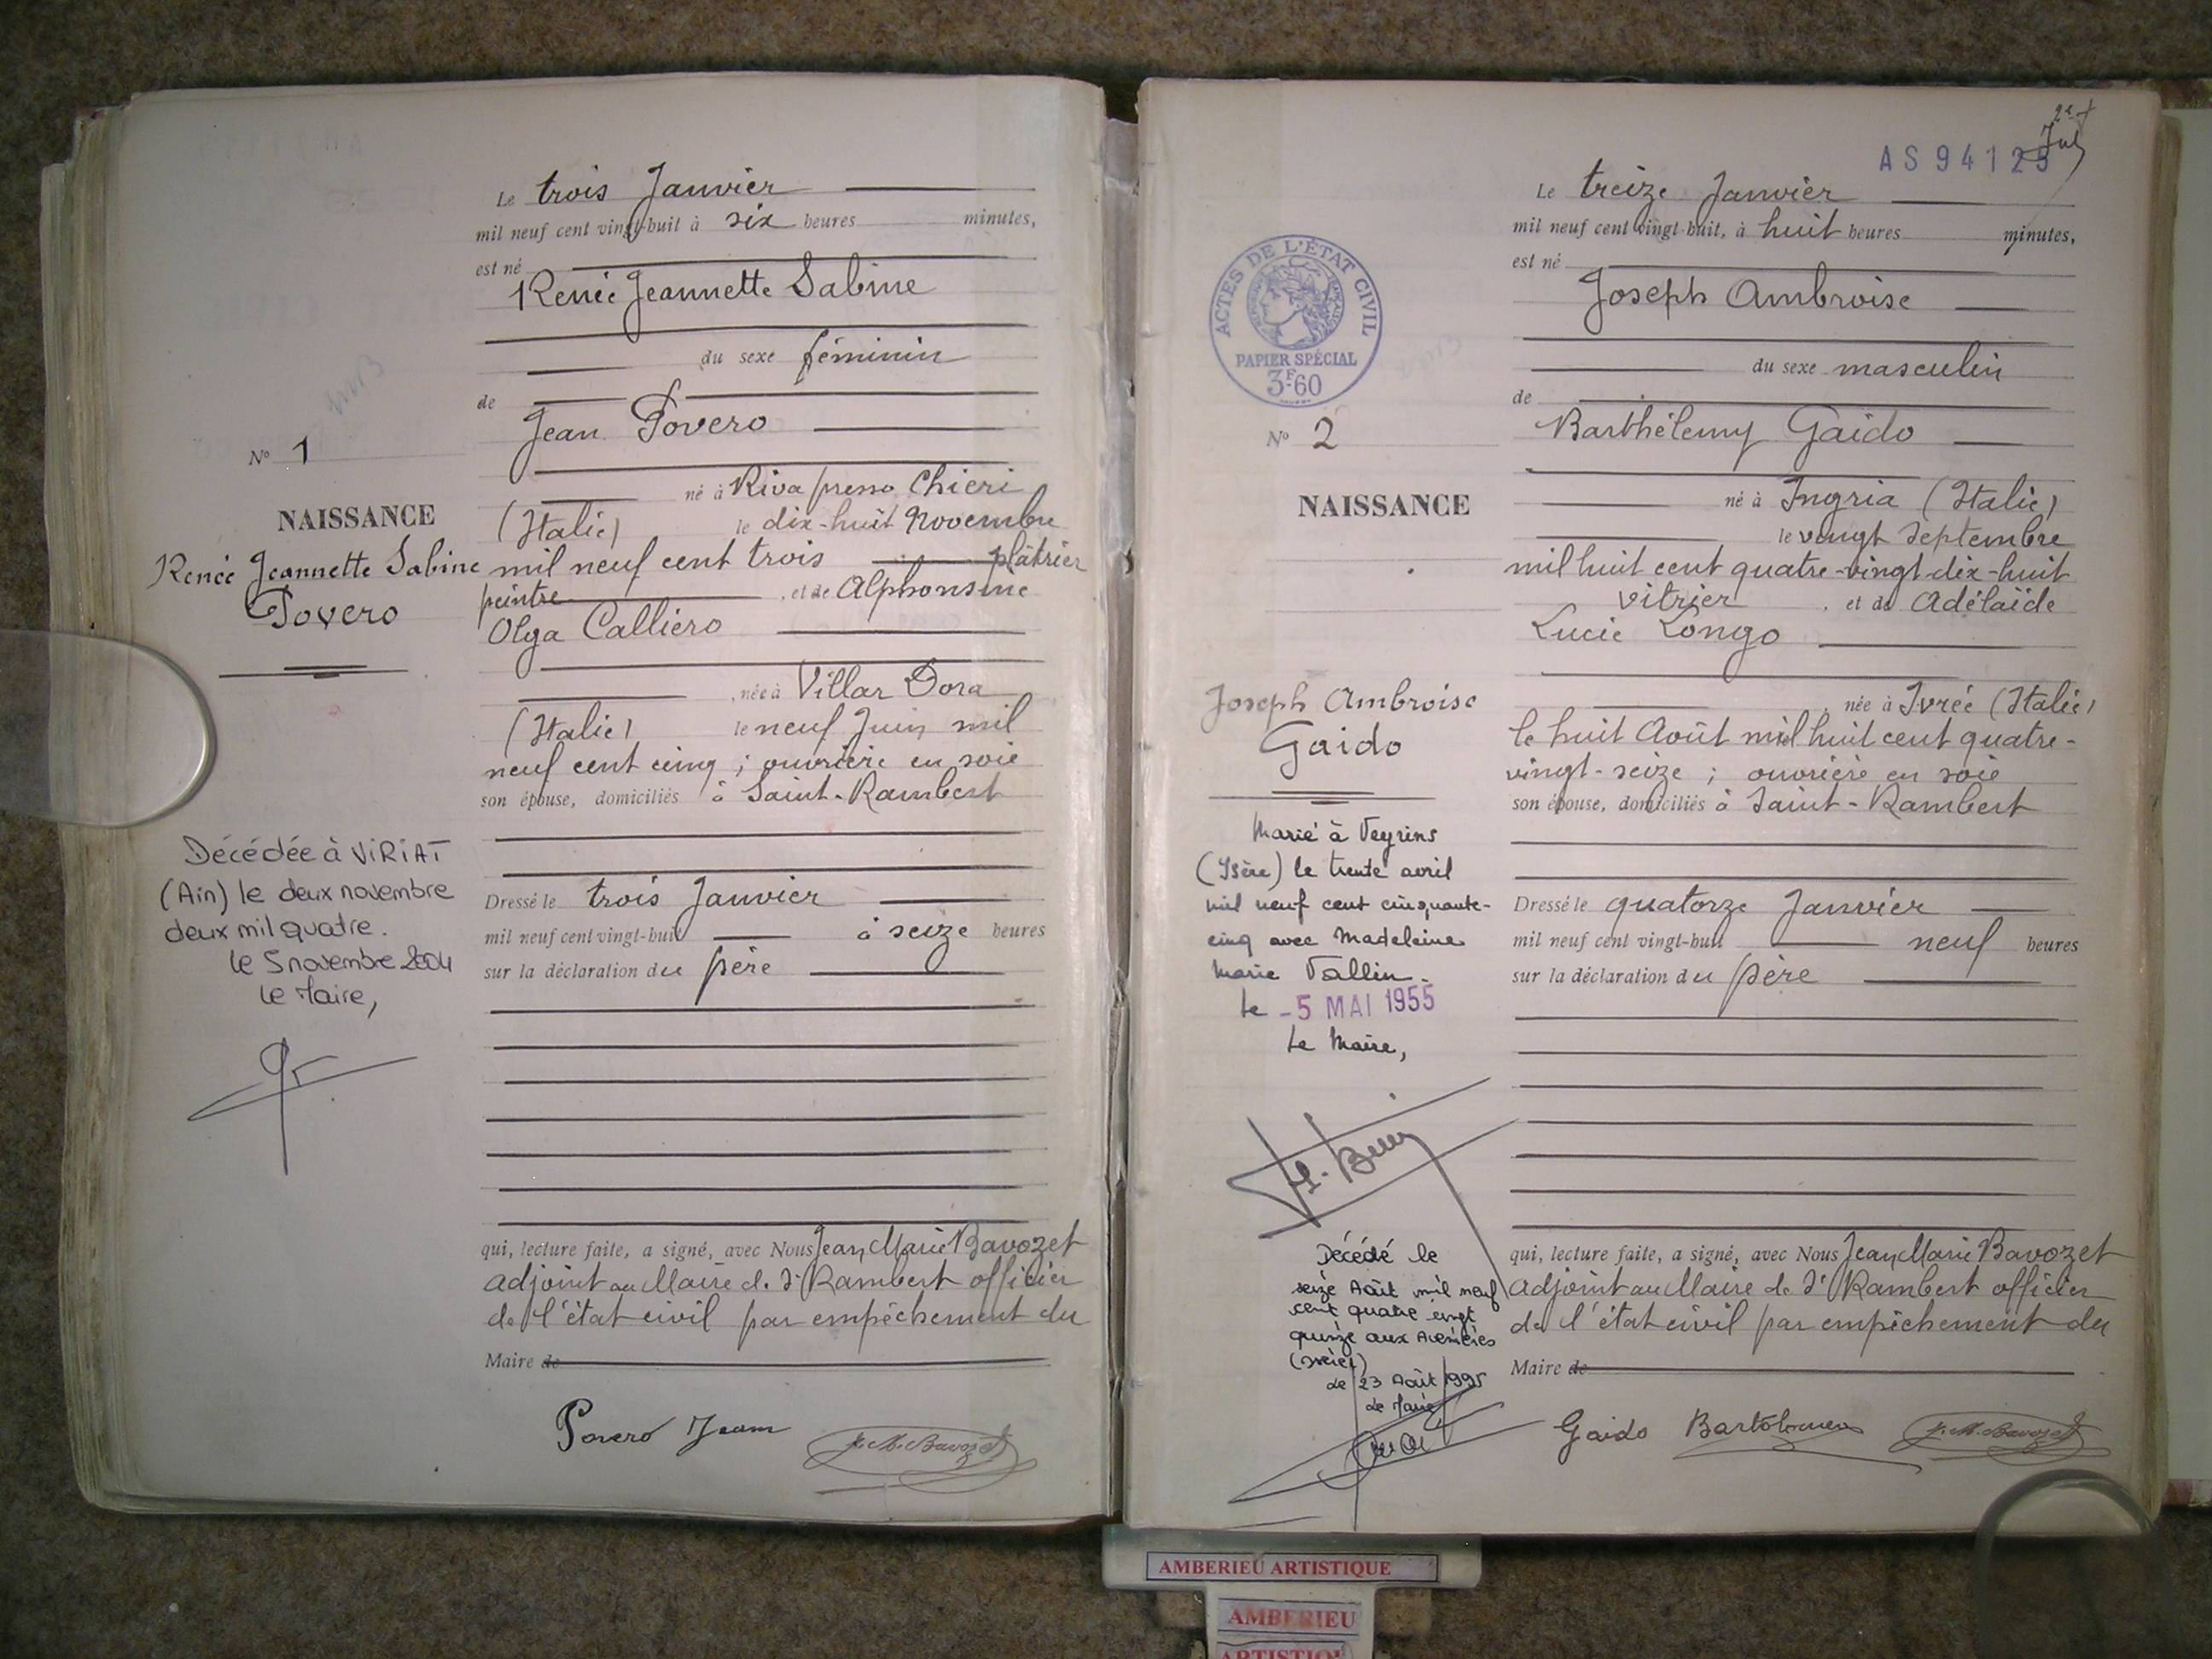 Le trois Janvier
mil neuf cent vingt-huit à six heures minutes,
est né
Renée Jeannette Sabine
du sexe féminin
de
Jean Povero
né à Riva presso Chieri
(Italie) le dix-huit Novembre
mil neuf cent trois plâtrier
peintre, et de Alphonsine
Olga Calliero
née à Villar Dora
(Italie) le neuf Juin mil
neuf cent cinq ; ouvrière en soie
son épouse, domiciliés à Saint-Rambert
Dressé le trois Janvier
mil neuf cent vingt-huit à seize heures
sur la déclaration du père
qui, lecture faite, a signé, avec Nous Jean Marie Bavozet
adjoint au Maire de St Rambert officier
de l'état civil par empêchement du
Maire de
Povero Jean
J. M. Bavozet
No 1
NAISSANCE
Renée Jeannette Sabine
Povero
Décédée à VIRIAT
(Ain) le deux novembre
deux mil quatre.
le 5 novembre 2004
Le Maire,
AS 94123
Le treize Janvier
mil neuf cent vingt-huit, à huit heures minutes,
est né
Joseph Ambroise
du sexe masculin
de
Barthélemy Gaido
né à Ingria (Italie)
le vingt Septembre
mil huit cent quatre-vingt-dix-huit
vitrier, et de Adélaïde
Lucie Longo
née à Ivrée (Italie)
le huit Août mil huit cent quatre-
vingt-seize ; ouvrière en soie
son épouse, domiciliés à Saint-Rambert
Dressé le quatorze Janvier
mil neuf cent vingt-huit neuf heures
sur la déclaration du père
qui, lecture faite, a signé, avec Nous Jean Marie Bavozet
adjoint au Maire de St Rambert officier
de l'état civil par empêchement du
Maire de
Gaido Bartolomeo
J. M. Bavozet
ACTES DE L'ÉTAT CIVIL
PAPIER SPÉCIAL
3F.60
No 2
NAISSANCE
Joseph Ambroise
Gaido
Marié à Veyrins
(Isère) le trente avril
mil neuf cent cinquante-
cinq avec Madeleine
Marie Vallin.
Le -5 MAI 1955
Le Maire,
Décédé le
seize Août mil neuf
cent quatre vingt
quinze aux Avenières
(Isère)
le 23 Août 1995
Le Maire
AMBERIEU ARTISTIQUE
AMBERIEU
ARTISTIQUE